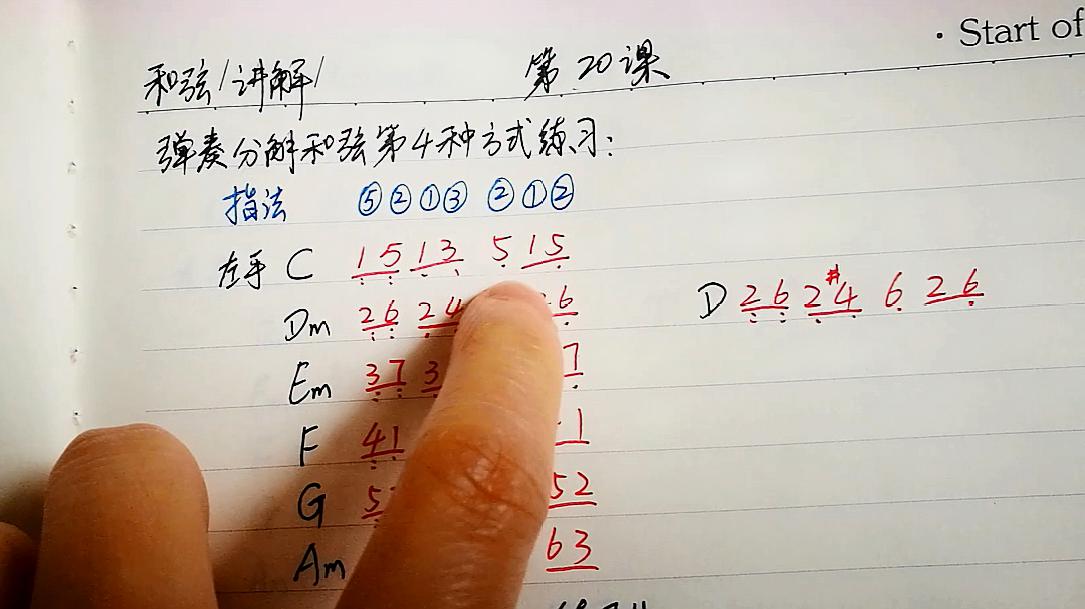 · Start of
和弦/讲解/ 第20课
弹奏分解和弦第4种方式练习:
指法 ⑤②①③ ②①②
左手 C 1 5 1 3 5 1 5
Dm 2 6 2 4 6
D 2 6 2 #4 6 2 6
Em 3 7 3 7
F 4 1 1
G 5 5 2
Am 6 3